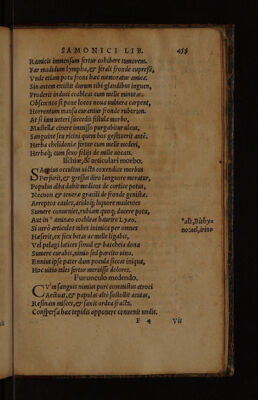 SAMONICI LIB. 455
Ramicis immensum fertur cohibere tumorem.
Far madidum lympha, & ferali fronde cupressi,
Vnde etiam potu frons hæc memoratur amica.
Sin autem existit durum tibi glandibus inguen,
Proderit induti cochleas cum melle minutas.
Obscœnos si pone locos noua vulnera carpent,
Horrentum mansa curantur fronde ruborum.
At si iam veteri succedit fistula morbo,
Mustellæ cinere immisso purgabitur ulcus,
Sanguine seu ricini quem bos gestauerit antè.
Herba chelidoniæ fertur cum melle mederi,
Herbaq́; cum sexo filijs de mille vocata.
Ischiæ, & articulari morbo.
SAepius occultus victa coxendice morbus
Perfurit, & gressus diro languore moratur.
Populus alba dabit medicos de cortice potus,
Necnon & teneræ gracili de fronde genistæ.
Arreptos caules, acidoq́; liquore madentes
Sumere conueniet, rubiam quoq; ducere potu,
Aut in * amineo cochleas haurire Lyæo.
Si uerò articulos inber inimica per omnes
Hæserit, ex ficu betas ac melle ligabis,
Vel pelagi latices simul & baccheia dona
Sumere curabis, nimio sed parcito vino.
Ennius ipse pater dum pocula siccat iniqua,
Hoc uitio tales fertur meruisse dolores.
Furunculo medendo.
CVm sanguis nimius puri commistus atroci
Aestuat, & papulas alte sustollit acutas,
Resinam misces, & saxit ordea fractæ.
Conspersa hæc tepidis apponere conuenit undis.
F 4 Vit